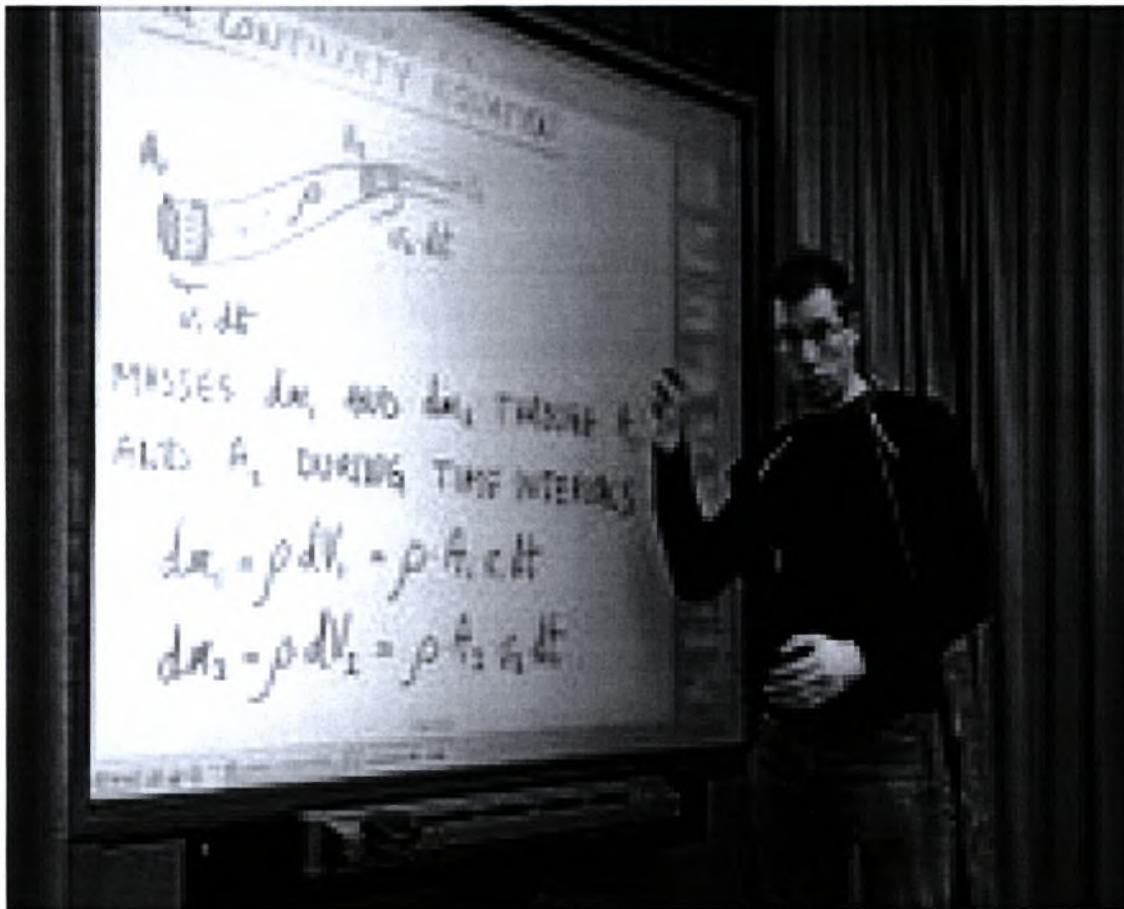 THE CONTINUITY EQUATION
A₁
A₂
ρ
v₂ dt
v₁ dt
MASSES dm₁ AND dm₂ THROUGH A₁
AND A₂ DURING TIME INTERVALS
dm₁ = ρ dV₁ = ρ · A₁ v₁ dt
dm₂ = ρ dV₂ = ρ A₂ v₂ dt